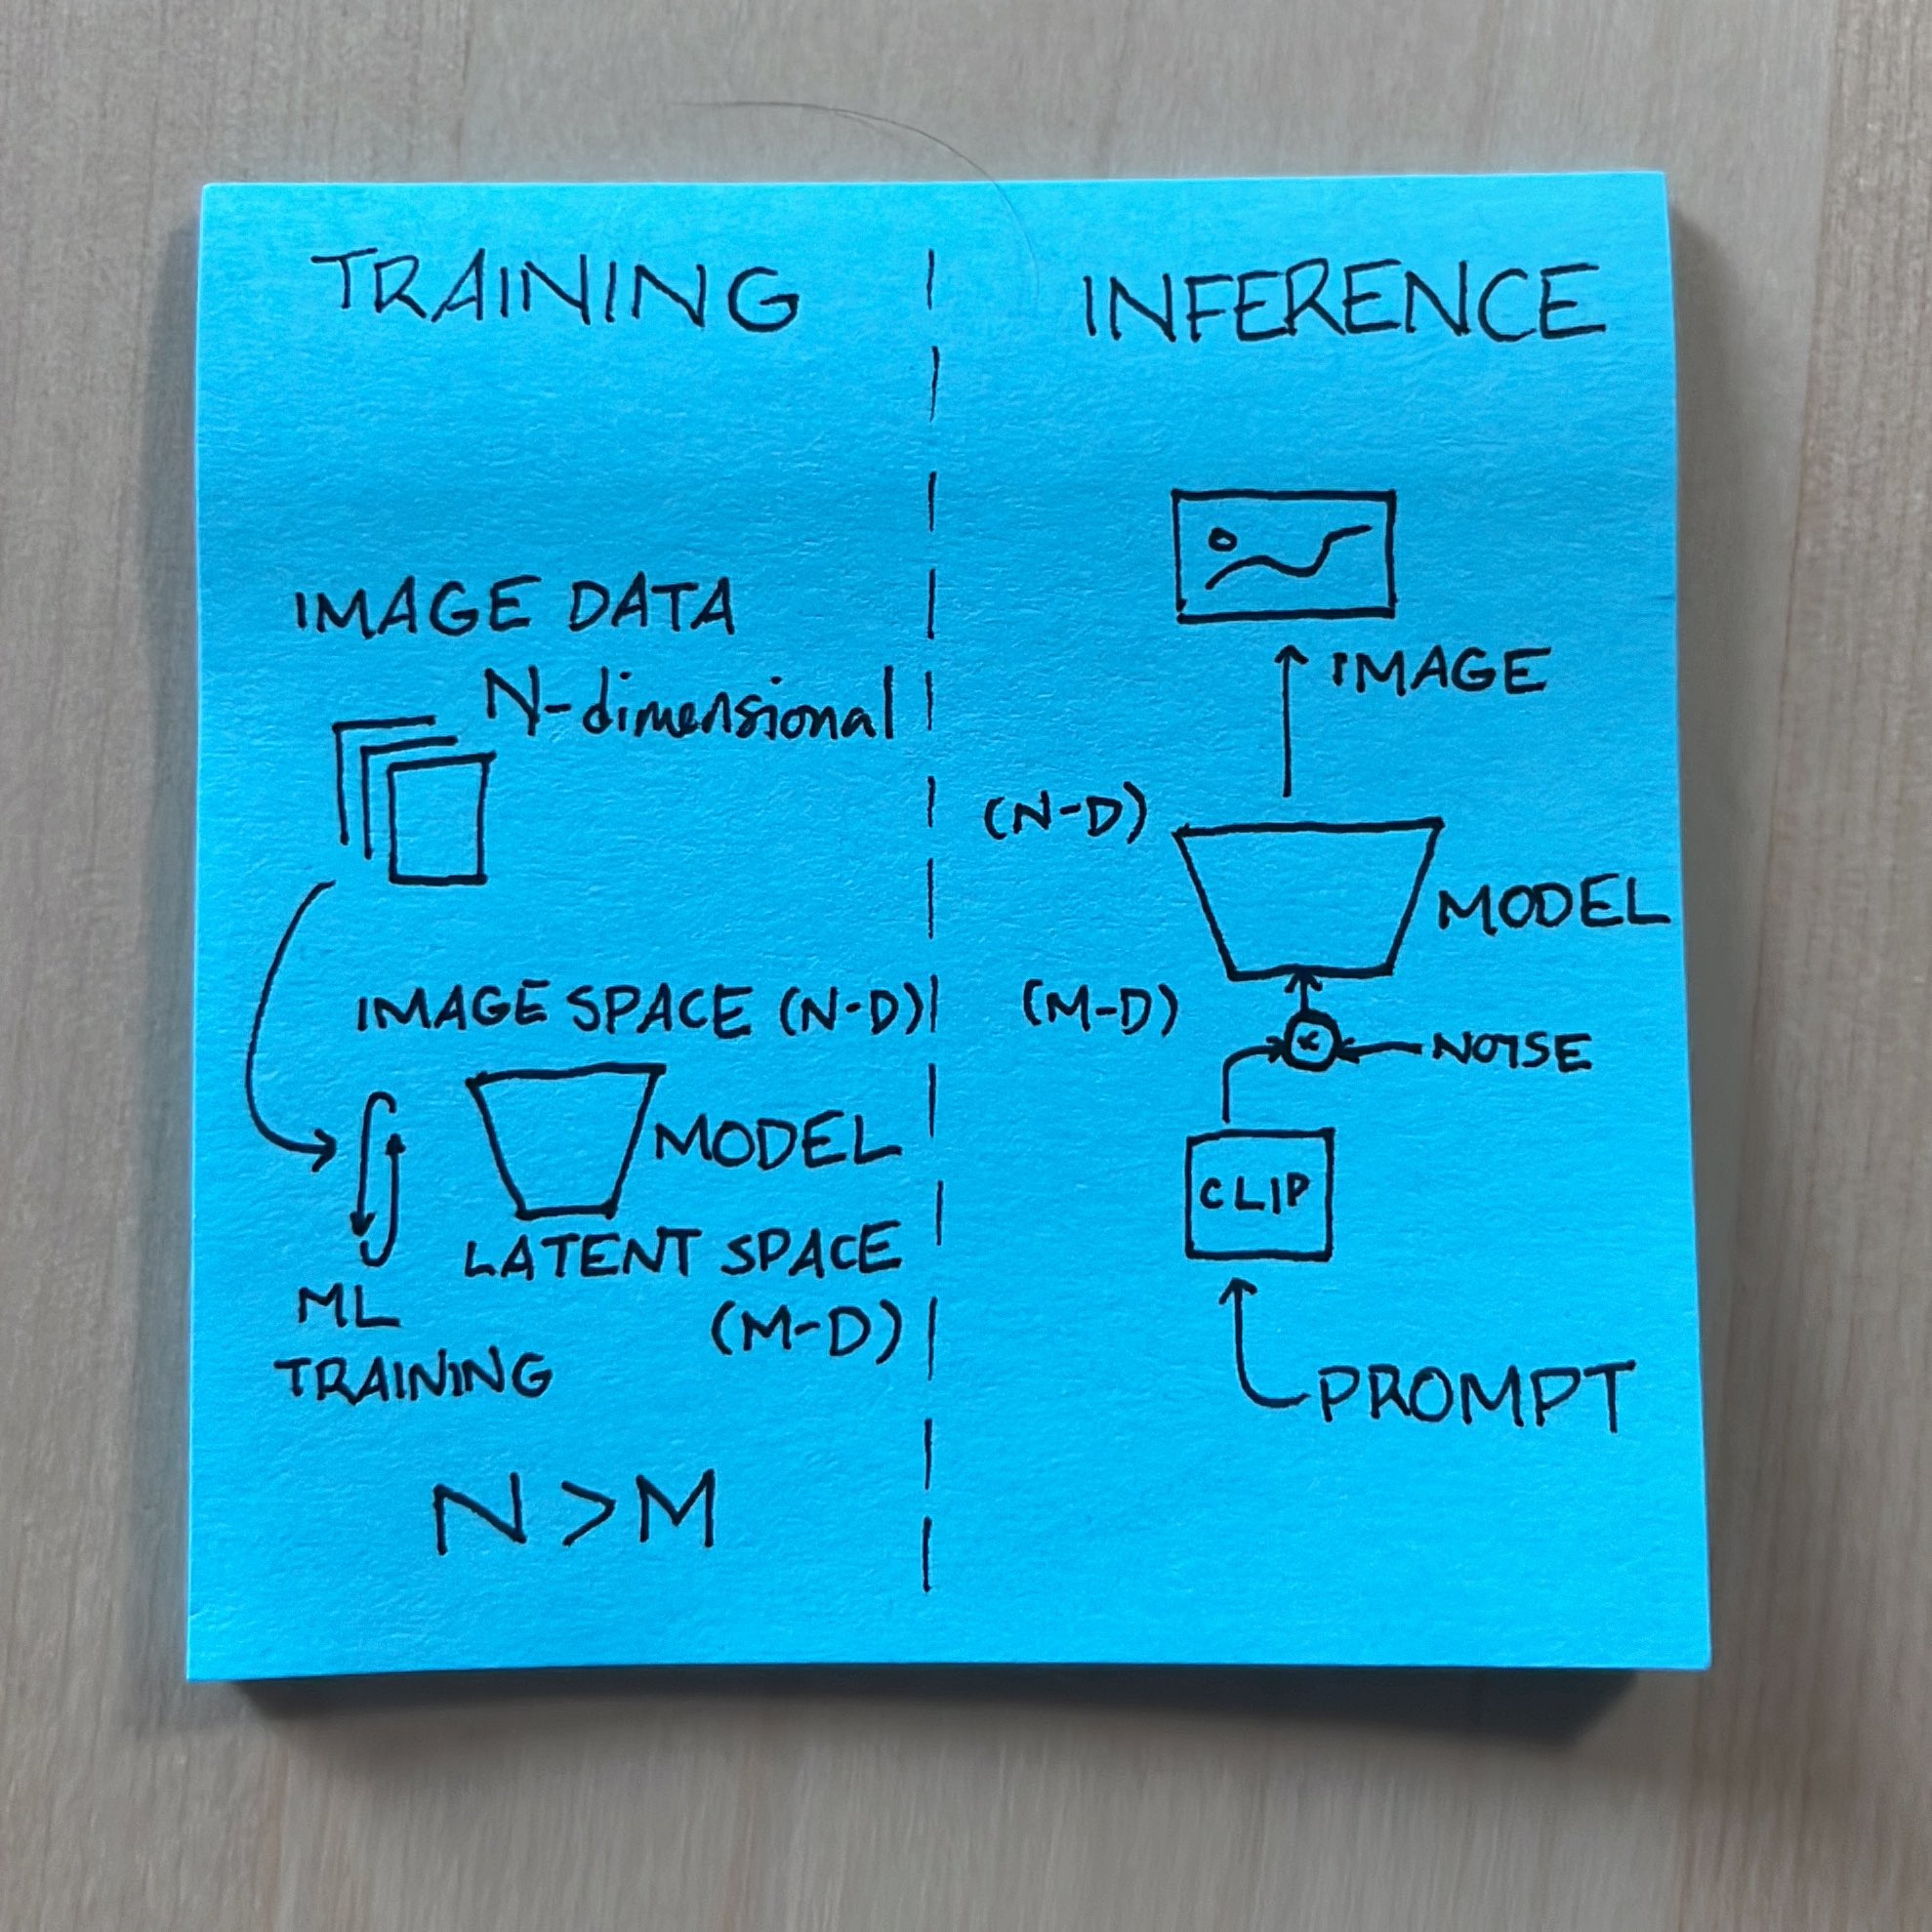 TRAINING
IMAGE DATA
N-dimensional
IMAGE SPACE (N-D)
MODEL
LATENT SPACE
(M-D)
ML
TRAINING
N>M
INFERENCE
IMAGE
(N-D)
MODEL
(M-D)
NOISE
CLIP
PROMPT